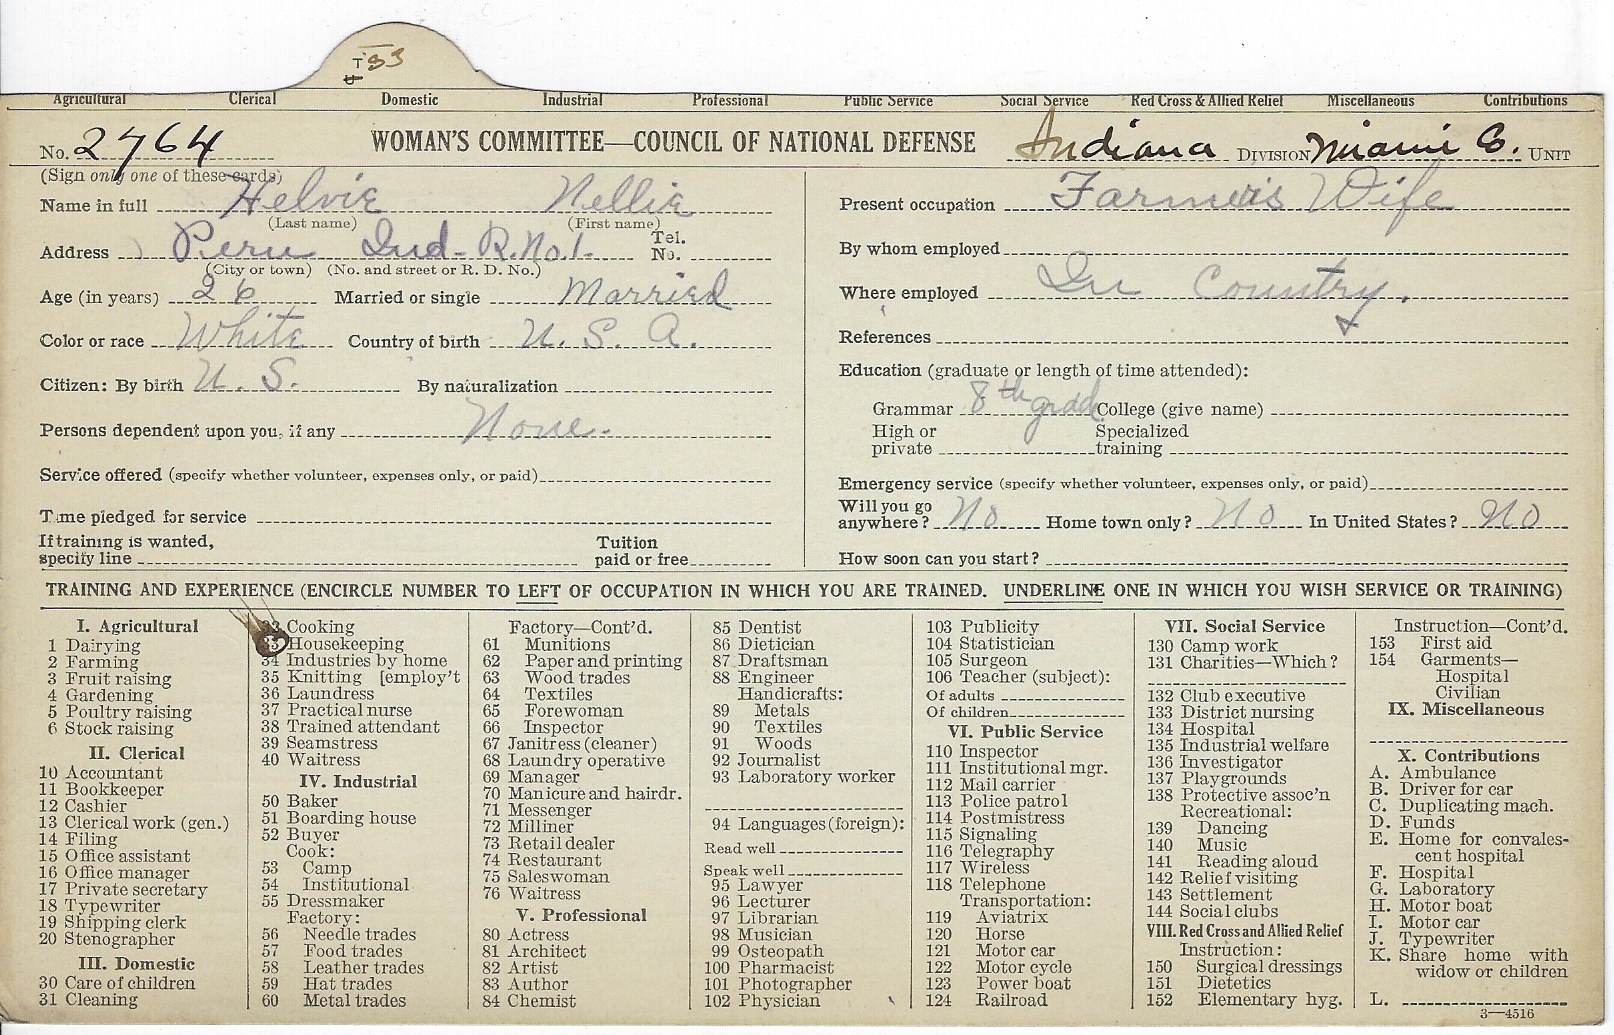 T 33
Agricultural Clerical Domestic Industrial Professional Public Service Social Service Red Cross & Allied Relief Miscellaneous Contributions
No. 2764 WOMAN'S COMMITTEE—COUNCIL OF NATIONAL DEFENSE Indiana DIVISION Miami Co. UNIT
(Sign only one of these cards)
Name in full Helvie Nellie
(Last name) (First name)
Address Peru Ind- R. No. 1- Tel. No.
(City or town) (No. and street or R. D. No.)
Age (in years) 26 Married or single Married
Color or race White Country of birth U. S. A.
Citizen: By birth U. S. By naturalization
Persons dependent upon you, if any None.
Service offered (specify whether volunteer, expenses only, or paid)
Time pledged for service
If training is wanted,
specify line
Tuition
paid or free
Present occupation Farmer's Wife
By whom employed
Where employed In Country.
References
Education (graduate or length of time attended):
Grammar 8th grad College (give name)
High or private Specialized training
Emergency service (specify whether volunteer, expenses only, or paid)
Will you go anywhere? No Home town only? No In United States? No
How soon can you start?
TRAINING AND EXPERIENCE (ENCIRCLE NUMBER TO LEFT OF OCCUPATION IN WHICH YOU ARE TRAINED. UNDERLINE ONE IN WHICH YOU WISH SERVICE OR TRAINING)
I. Agricultural
1 Dairying
2 Farming
3 Fruit raising
4 Gardening
5 Poultry raising
6 Stock raising
II. Clerical
10 Accountant
11 Bookkeeper
12 Cashier
13 Clerical work (gen.)
14 Filing
15 Office assistant
16 Office manager
17 Private secretary
18 Typewriter
19 Shipping clerk
20 Stenographer
III. Domestic
30 Care of children
31 Cleaning
Cooking
33 Housekeeping
34 Industries by home
35 Knitting [employ't
36 Laundress
37 Practical nurse
38 Trained attendant
39 Seamstress
40 Waitress
IV. Industrial
50 Baker
51 Boarding house
52 Buyer
Cook:
53 Camp
54 Institutional
55 Dressmaker
Factory:
56 Needle trades
57 Food trades
58 Leather trades
59 Hat trades
60 Metal trades
Factory—Cont'd.
61 Munitions
62 Paper and printing
63 Wood trades
64 Textiles
65 Forewoman
66 Inspector
67 Janitress (cleaner)
68 Laundry operative
69 Manager
70 Manicure and hairdr.
71 Messenger
72 Milliner
73 Retail dealer
74 Restaurant
75 Saleswoman
76 Waitress
V. Professional
80 Actress
81 Architect
82 Artist
83 Author
84 Chemist
85 Dentist
86 Dietician
87 Draftsman
88 Engineer
Handicrafts:
89 Metals
90 Textiles
91 Woods
92 Journalist
93 Laboratory worker
94 Languages (foreign):
Read well
Speak well
95 Lawyer
96 Lecturer
97 Librarian
98 Musician
99 Osteopath
100 Pharmacist
101 Photographer
102 Physician
103 Publicity
104 Statistician
105 Surgeon
106 Teacher (subject):
Of adults
Of children
VI. Public Service
110 Inspector
111 Institutional mgr.
112 Mail carrier
113 Police patrol
114 Postmistress
115 Signaling
116 Telegraphy
117 Wireless
118 Telephone
Transportation:
119 Aviatrix
120 Horse
121 Motor car
122 Motor cycle
123 Power boat
124 Railroad
VII. Social Service
130 Camp work
131 Charities—Which?
132 Club executive
133 District nursing
134 Hospital
135 Industrial welfare
136 Investigator
137 Playgrounds
138 Protective assoc'n
Recreational:
139 Dancing
140 Music
141 Reading aloud
142 Relief visiting
143 Settlement
144 Social clubs
VIII. Red Cross and Allied Relief
Instruction:
150 Surgical dressings
151 Dietetics
152 Elementary hyg.
Instruction—Cont'd.
153 First aid
154 Garments—
Hospital
Civilian
IX. Miscellaneous
X. Contributions
A. Ambulance
B. Driver for car
C. Duplicating mach.
D. Funds
E. Home for convales-
cent hospital
F. Hospital
G. Laboratory
H. Motor boat
I. Motor car
J. Typewriter
K. Share home with
widow or children
L.
3—4516